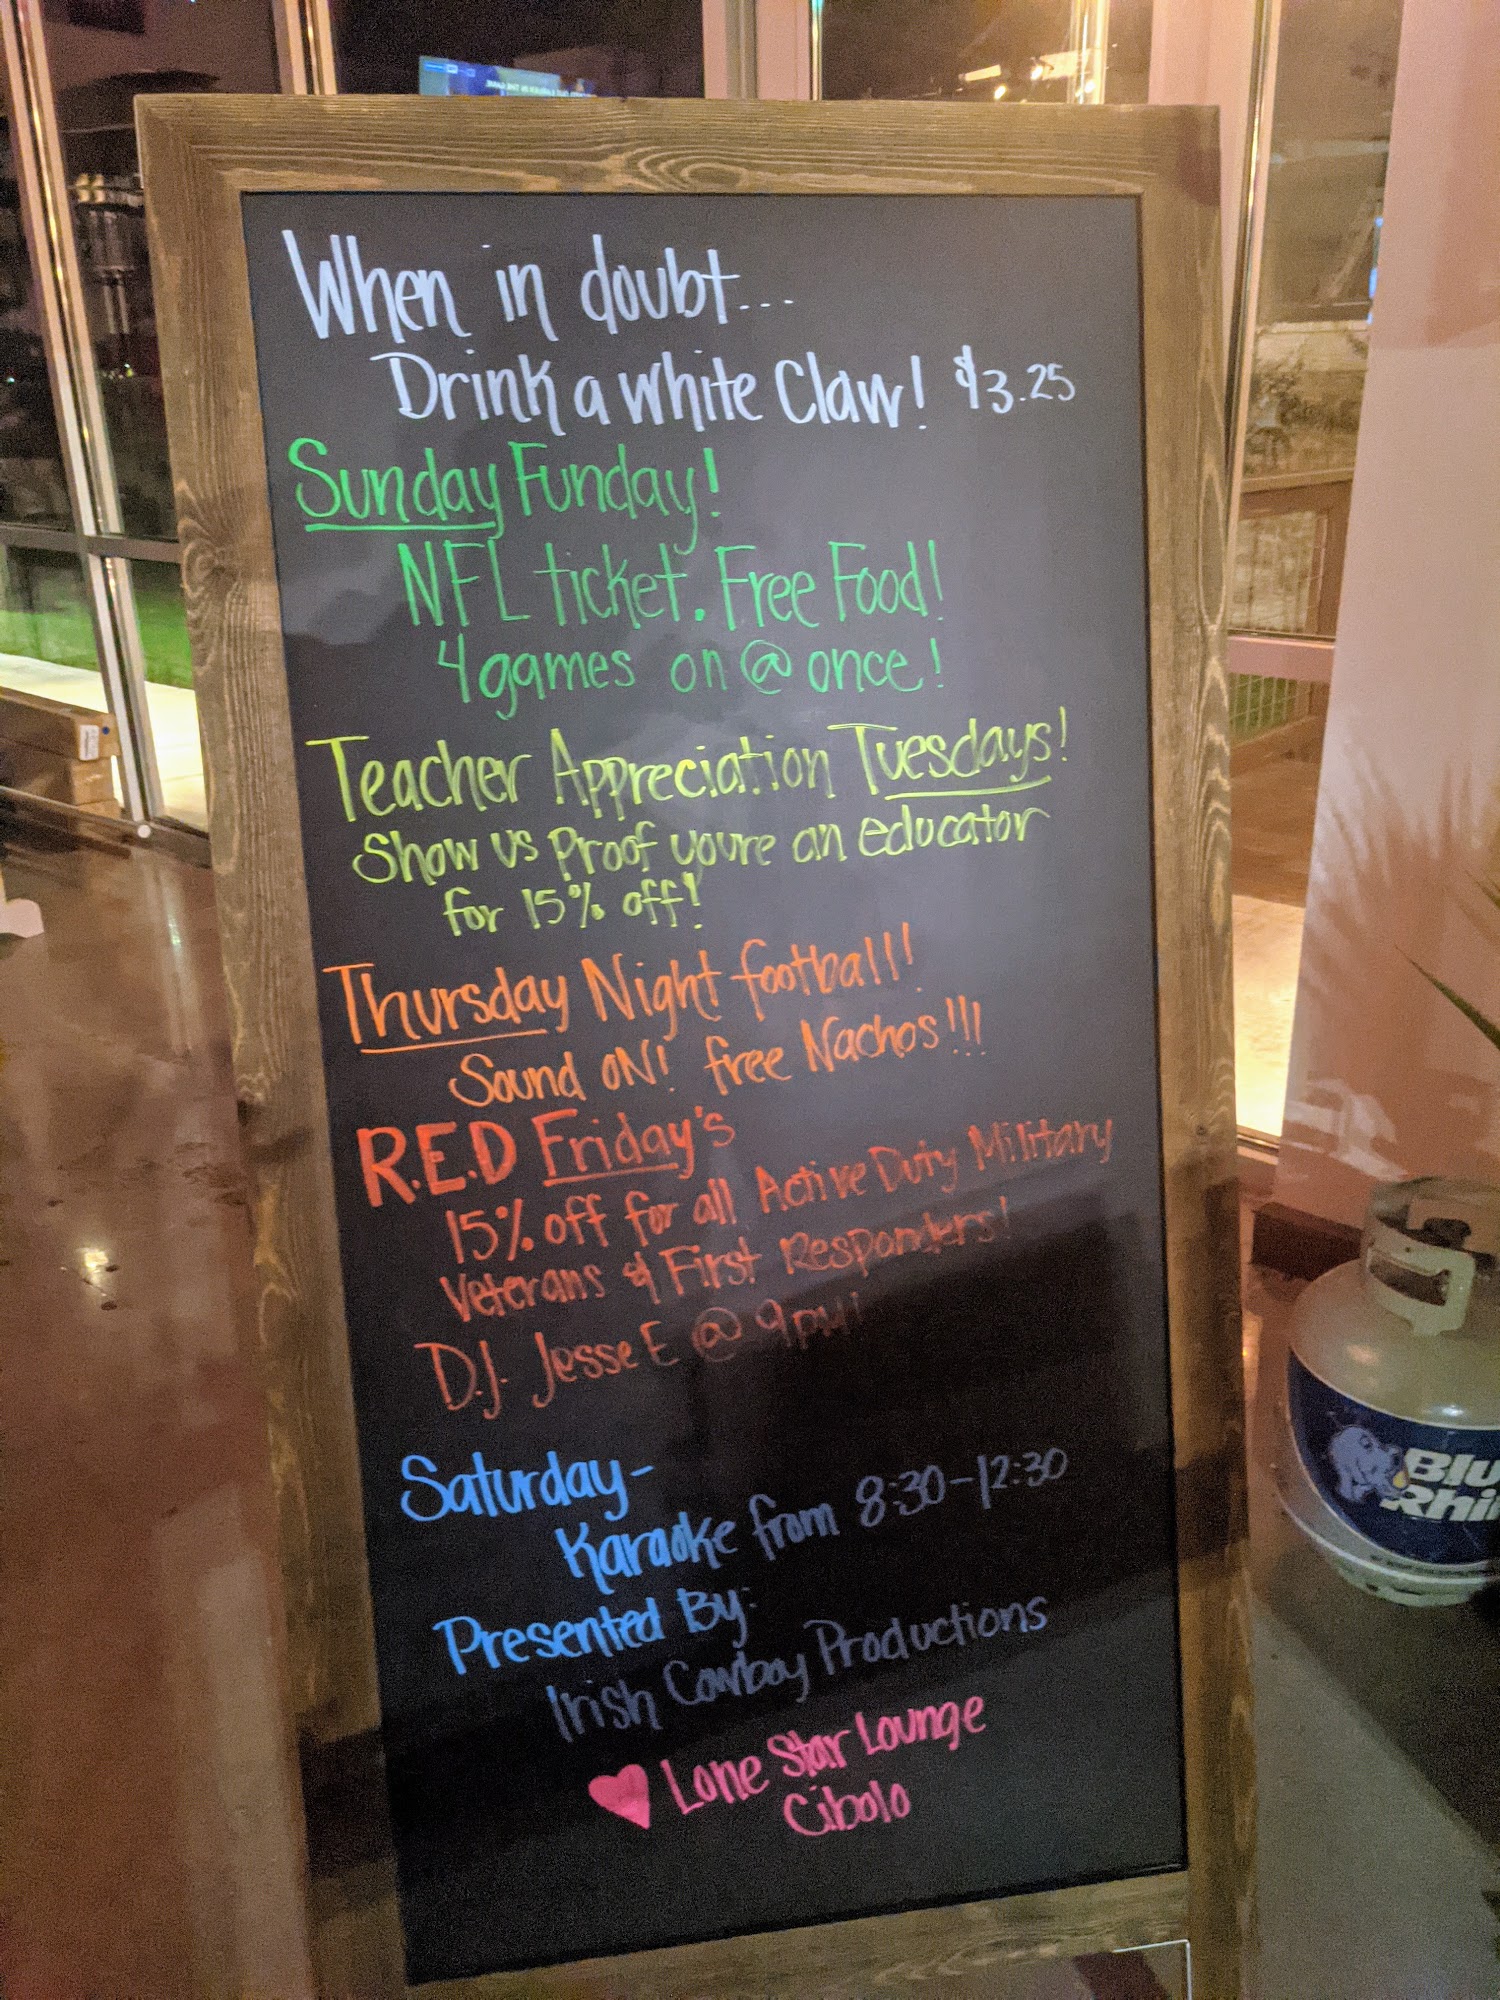 When in doubt...
Drink a White Claw! $3.25
Sunday Funday!
NFL ticket. Free Food!
4 games on @ once!
Teacher Appreciation Tuesdays!
Show us Proof youre an educator
for 15% off!
Thursday Night football!!
Sound ON! free Nachos!!!
R.E.D Friday's
15% off for all Active Duty Military
Veterans & First Responders!
D.J. Jesse E @ 9pm!
Saturday-
Karaoke from 8:30-12:30
Presented By:
Irish Cowboy Productions
Lone Star Lounge
Cibolo
Blu
Rhi